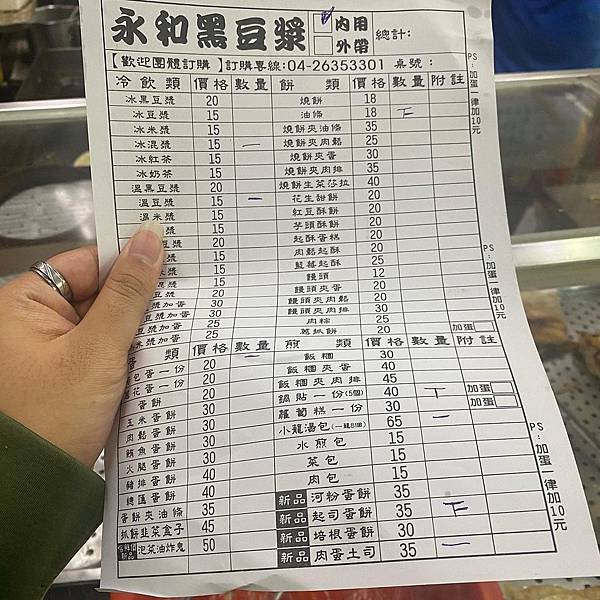 永和黑豆漿
✓ 內用
外帶
總計:
【歡迎團體訂購】訂購專線:04-26353301 桌號:
冷飲類 價格 數量 餅類 價格 數量 附註
冰黑豆漿 20 燒餅 18
冰豆漿 15 油條 18 下
冰米漿 15 燒餅夾油條 35
冰混漿 15 一 燒餅夾肉鬆 25
冰紅茶 15 燒餅夾蛋 30
冰奶茶 15 燒餅夾肉排 35
溫黑豆漿 20 燒餅生菜莎拉 40
溫豆漿 15 一 花生甜餅 20
溫米漿 15 紅豆酥餅 20
漿 15 芋頭酥餅 20
豆漿 20 起酥蛋糕 20
15 肉鬆起酥 25
漿 15 藍莓起酥 25
混漿 15 饅頭 12
豆漿 20 饅頭夾蛋 20
豆漿加蛋 30 饅頭夾肉鬆 20
豆漿加蛋 30 饅頭夾肉排 30
漿加蛋 25 肉粽 25
米漿加蛋 25 蔥抓餅 20 加蛋
蛋類 價格 數量 煎類 價格 數量 附註
包蛋一份 20 飯糰 30
蔥花蛋一份 20 飯糰夾蛋 40
蛋餅 20 飯糰夾肉排 45
玉米蛋餅 30 鍋貼一份(5個) 40 下 加蛋
肉鬆蛋餅 30 蘿蔔糕一份 30 加蛋
鮪魚蛋餅 30 小籠湯包(一籠8個) 65 一
火腿蛋餅 30 水煎包 15
豬排蛋餅 40 菜包 15
總匯蛋餅 40 肉包 15
蛋餅夾油條 35 新品 河粉蛋餅 35
抓餅韭菜盒子 45 新品 起司蛋餅 35 下
新品 泡菜油炸鬼 50 新品 培根蛋餅 30
新品 肉蛋土司 35 一
PS:加蛋一律加10元
PS:加蛋一律加10元
PS:加蛋一律加10元